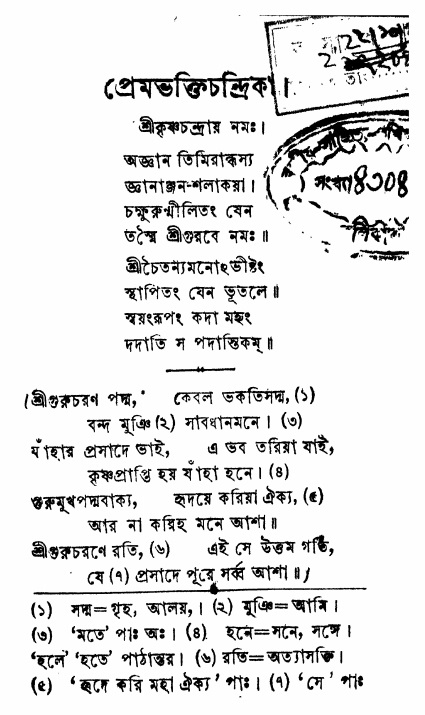 ২২/১০/
প্রেমভক্তিচন্দ্রিকা।
শ্রীকৃষ্ণচন্দ্রায় নমঃ।
অজ্ঞান তিমিরান্ধস্য
জ্ঞানাঞ্জন-শলাকয়া।
সংখ্যা ৪৩০৪
চক্ষুরুন্মীলিতং যেন
তস্মৈ শ্রীগুরবে নমঃ॥
শ্রীচৈতন্যমনোঽভীষ্টং
স্থাপিতং যেন ভূতলে॥
স্বয়ংরূপং কদা মহ্যং
দদাতি স পদান্তিকম্॥
শ্রীগুরুচরণ পদ্ম, কেবল ভকতিসদ্ম, (১)
বন্দ মূঞি (২) সাবধানমনে। (৩)
যাঁহার প্রসাদে ভাই, এ ভব তরিয়া যাই,
কৃষ্ণপ্রাপ্তি হয় যাঁহা হনে। (৪)
গুরুমুখপদ্মবাক্য, হৃদয়ে করিয়া ঐক্য, (৫)
আর না করিহ মনে আশা॥
শ্রীগুরুচরণে রতি, (৬) এই সে উত্তম গতি,
যে (৭) প্রসাদে পূরে সর্ব্ব আশা॥
(১) সদ্ম=গৃহ, আলয়,। (২) মূঞি=আমি।
(৩) ‘মতে’ পাঃ অঃ। (৪) হনে=সনে, সঙ্গে।
‘হলে’ ‘হতে’ পাঠান্তর। (৬) রতি=অত্যাসক্তি।
(৫) ‘হৃদে করি মহা ঐক্য’ পাঃ। (৭) ‘সে’ পাঃ